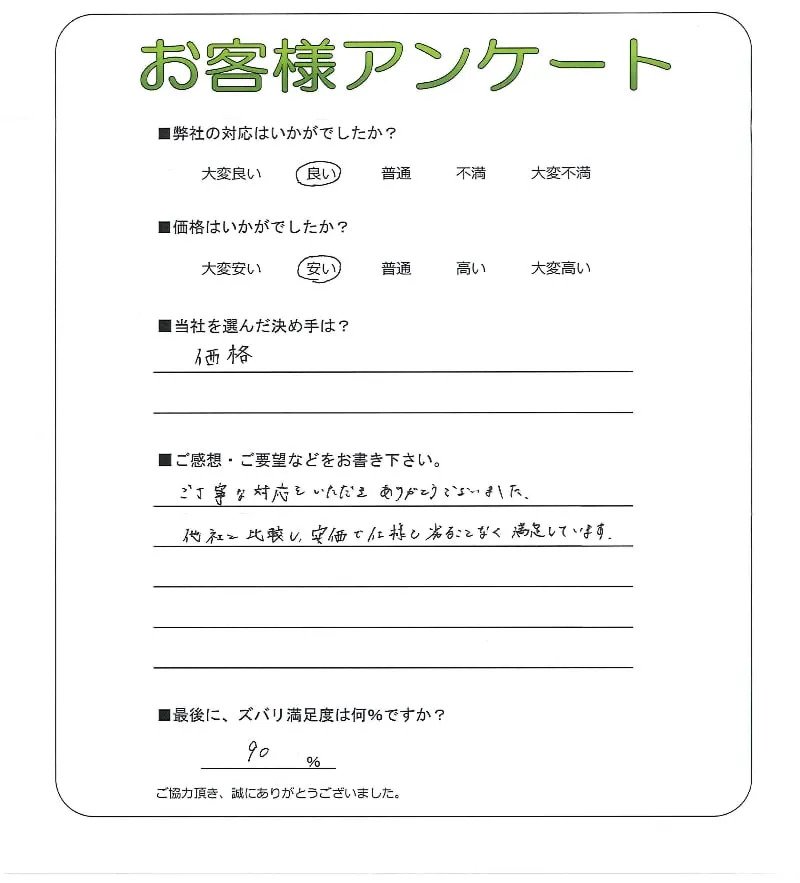 お客様アンケート
■弊社の対応はいかがでしたか?
大変良い 良い 普通 不満 大変不満
■価格はいかがでしたか?
大変安い 安い 普通 高い 大変高い
■当社を選んだ決め手は?
価格
■ご感想・ご要望などをお書き下さい。
ご丁寧な対応をいただき ありがとうございました.
他社と比較し、安価で仕様も劣ることなく満足しています.
■最後に、ズバリ満足度は何%ですか?
90 %
ご協力頂き、誠にありがとうございました。